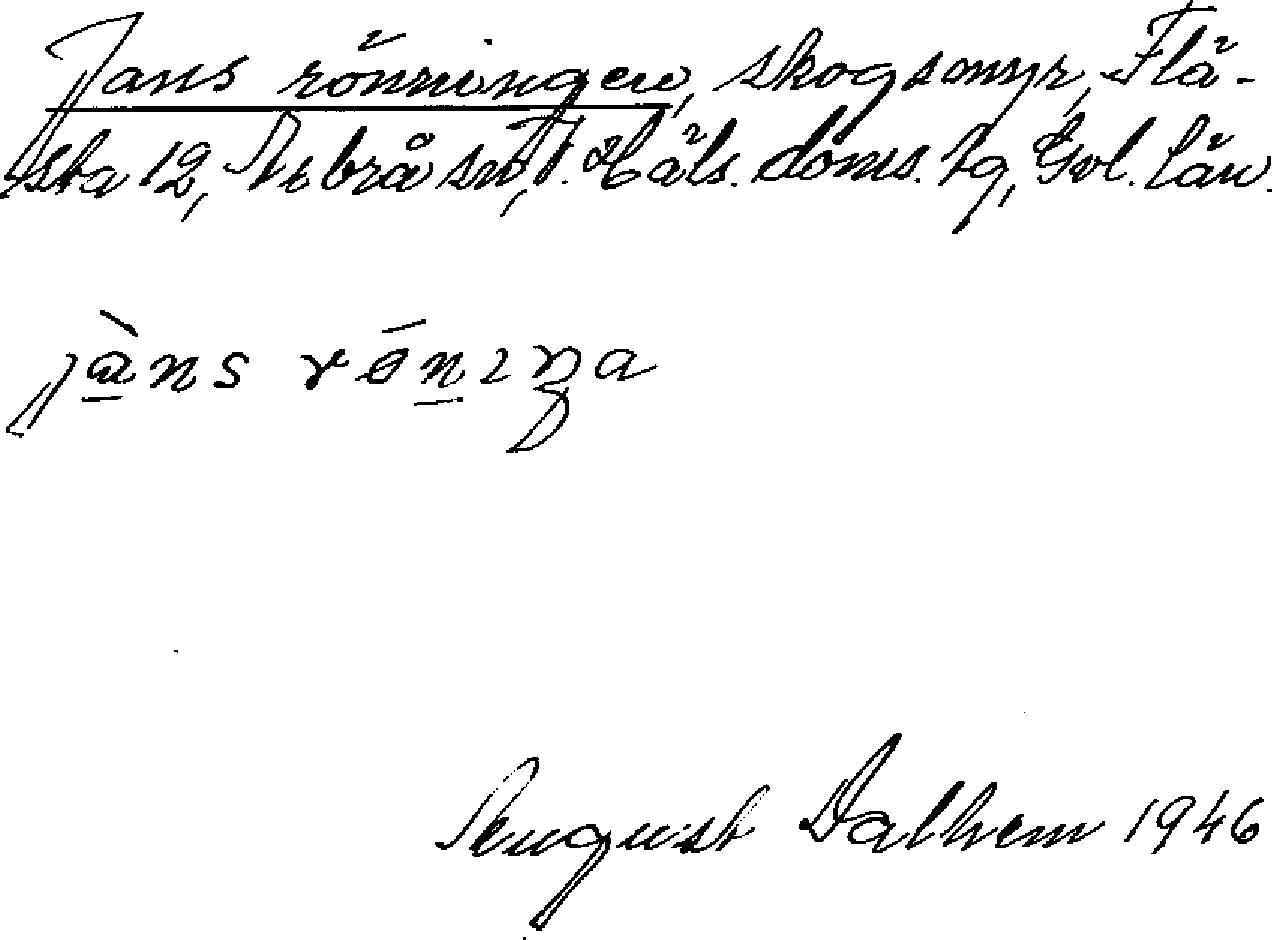 Jans rönningen, skogsmyr, Flä-
sta 12, Arbrå sn, V. Häls. doms. tg, Gvl. län.
jàns rǿnıŋa
August Dalhem 1946